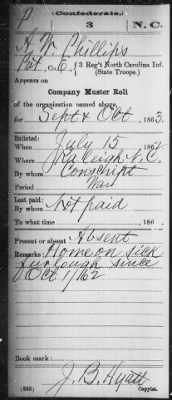 P
Confederate.
3
N.C.
A. W. Phillips
Pvt., Co. E, 3 Reg't North Carolina Inf.
(State Troops.)
Appears on
Company Muster Roll
of the organization named above,
for Sept & Oct, 1863.
Enlisted:
When July 15, 1862
Where Raleigh N.C.
By whom Conscript
Period War
Last paid:
By whom Not paid
To what time , 186
Present or absent Absent
Remarks: Home on sick
furlough since
Oct 1/62
Book mark:
J. B. Hyatt
(642) Copyist.